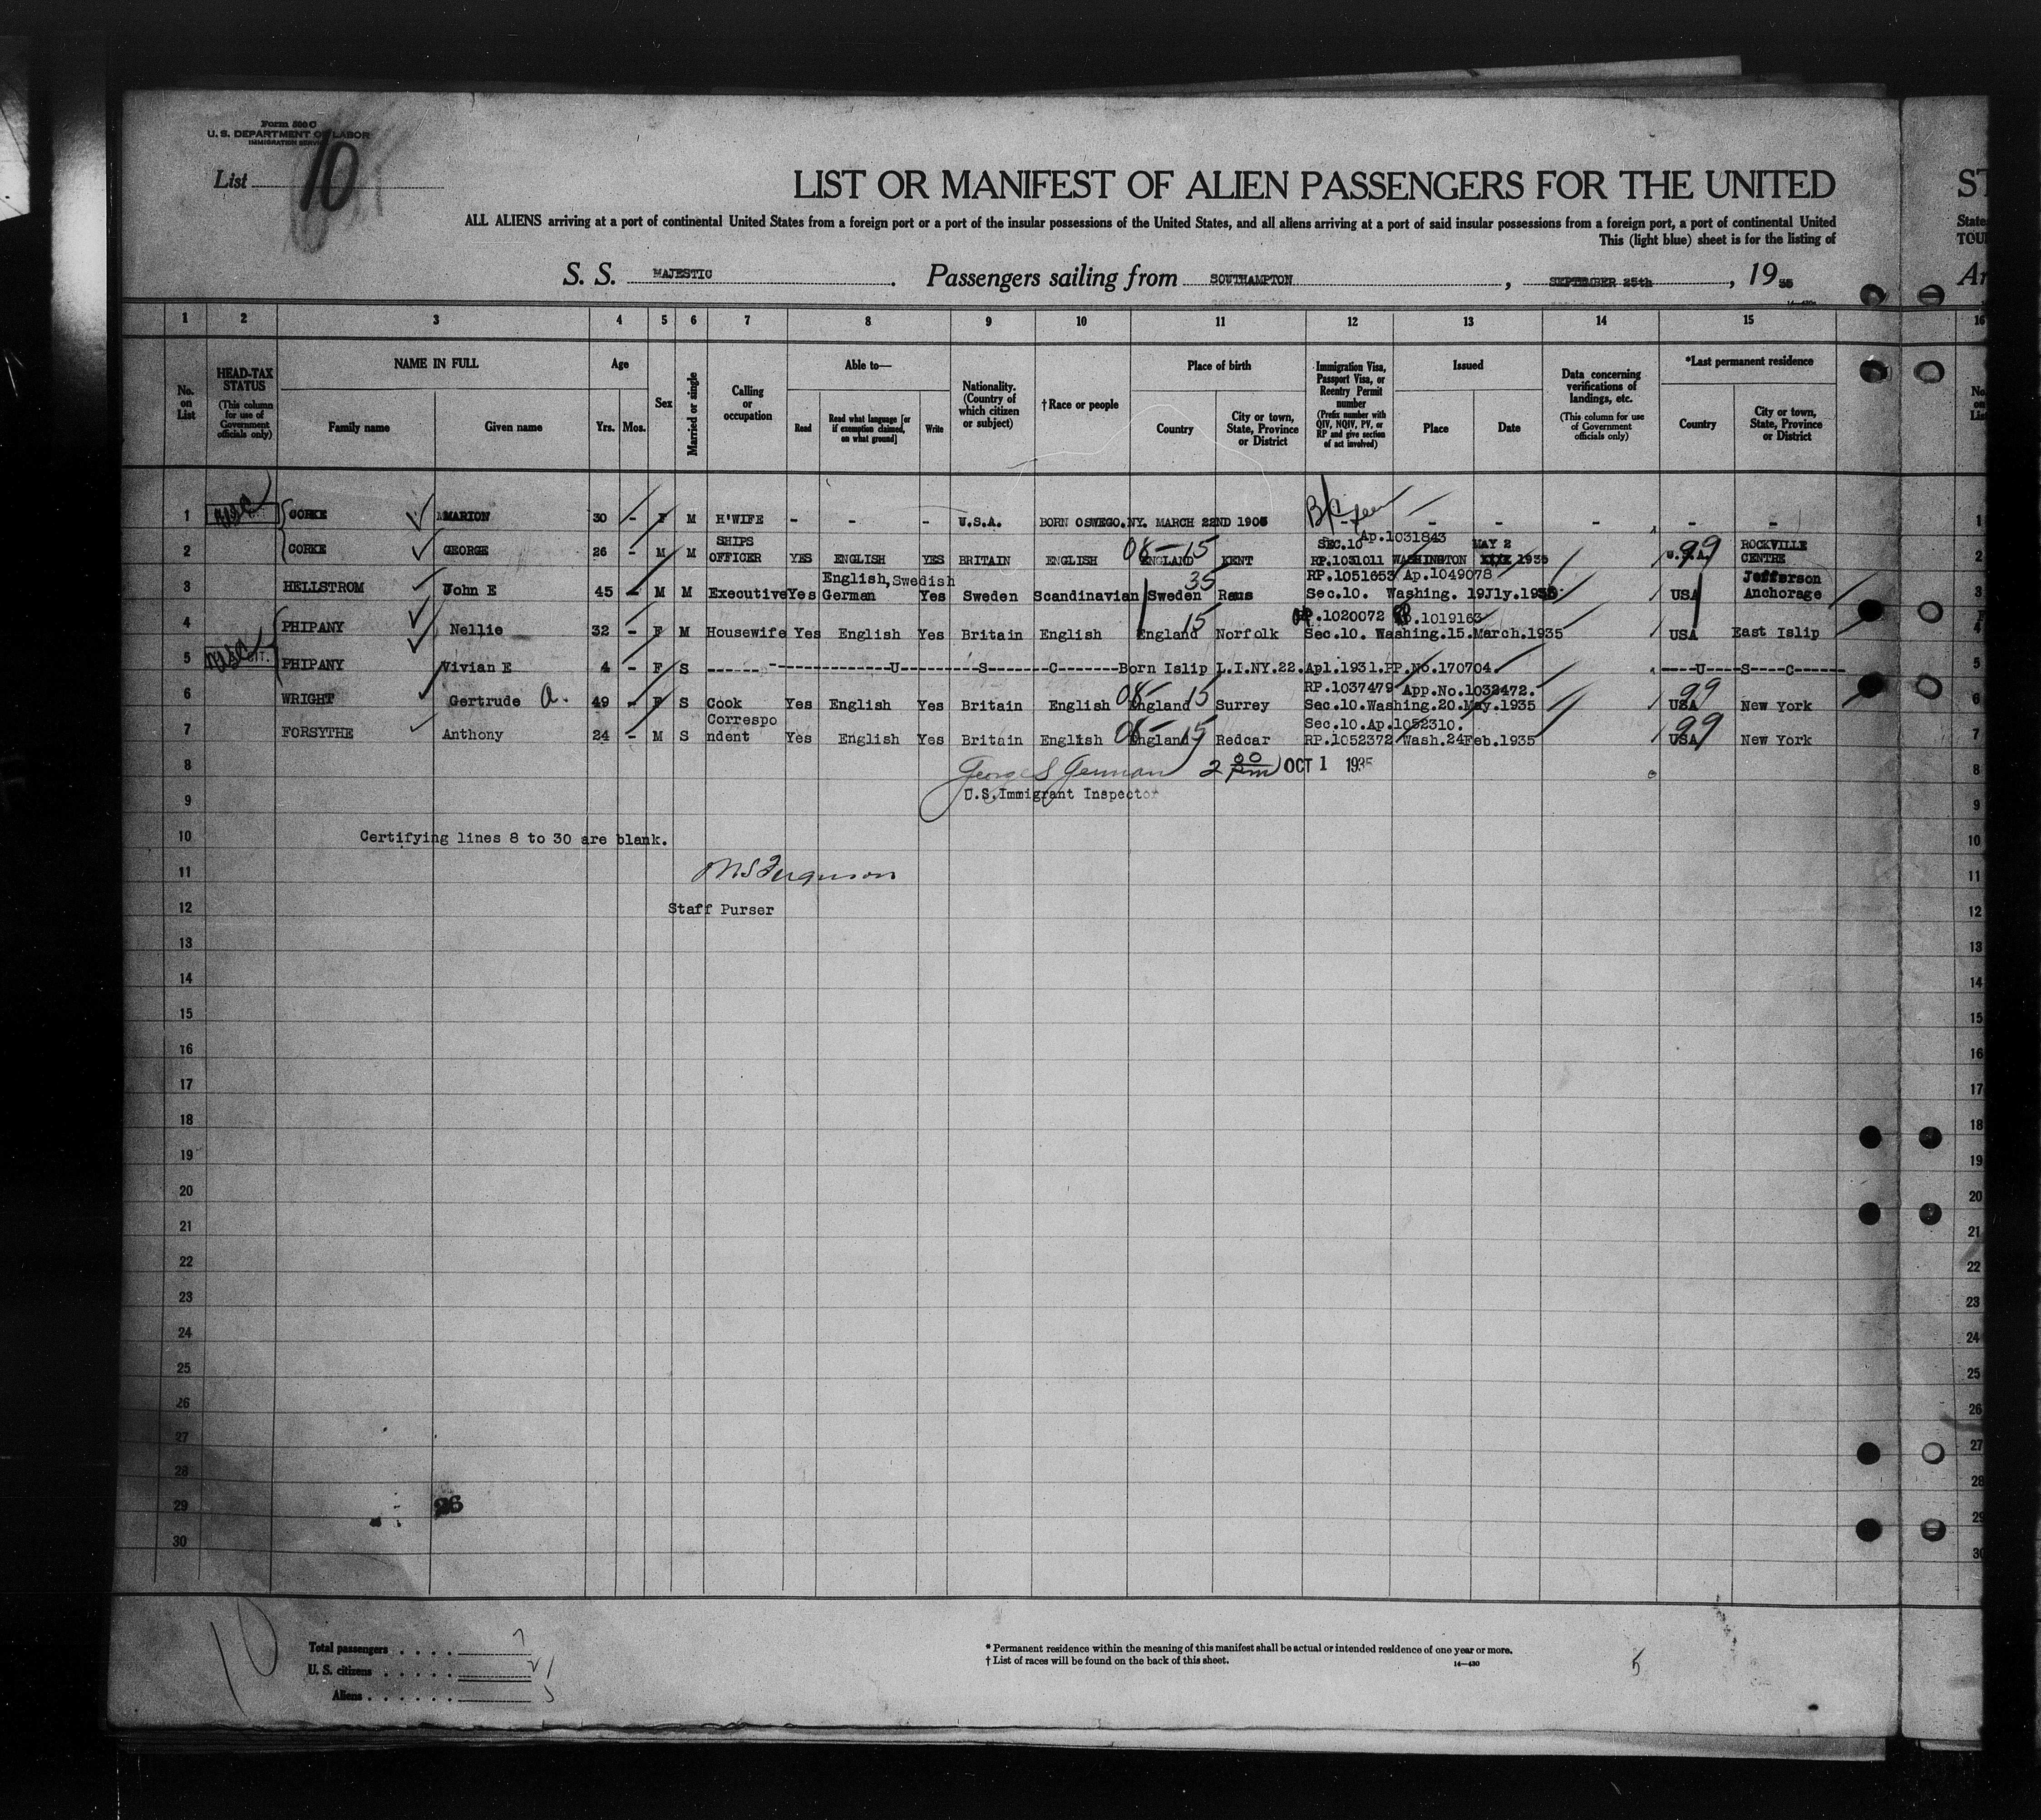 Form 500 C
U. S. DEPARTMENT OF LABOR
IMMIGRATION SERVICE
List 10
LIST OR MANIFEST OF ALIEN PASSENGERS FOR THE UNITED
ST
ALL ALIENS arriving at a port of continental United States from a foreign port or a port of the insular possessions of the United States, and all aliens arriving at a port of said insular possessions from a foreign port, a port of continental United
State
This (light blue) sheet is for the listing of
TOU
S. S. MAJESTIC. Passengers sailing from SOUTHAMPTON, SEPTEMBER 25th, 19 35
Ar
1 2 3 4 5 6 7 8 9 10 11 12 13 14 15 16
No. on List
HEAD-TAX STATUS (This column for use of Government officials only)
NAME IN FULL
Family name Given name
Age
Yrs. Mos.
Sex
Married or single
Calling or occupation
Able to—
Read Read what language [or if exemption claimed, on what ground] Write
Nationality. (Country of which citizen or subject)
†Race or people
Place of birth
Country City or town, State, Province or District
Immigration Visa, Passport Visa, or Reentry Permit number (Prefix number with QIV, NQIV, PV, or RP and give section of act involved)
Issued
Place Date
Data concerning verifications of landings, etc. (This column for use of Government officials only)
*Last permanent residence
Country City or town, State, Province or District
No. on List
1 USC CORKE MARION 30 - F M H'WIFE - - - U.S.A. BORN OSWEGO.NY. MARCH 22ND 1905 B/C seen - - - - - 1
SHIPS 08-15 SEC.10 Ap.1031843 MAY 2 99 ROCKVILLE
2 CORKE GEORGE 26 - M M OFFICER YES ENGLISH YES BRITAIN ENGLISH ENGLAND KENT RP.1031011 WASHINGTON 1935 U.S.A. CENTRE 2
English, Swedish 35 RP.1051653 Ap.1049078 Jefferson
3 HELLSTROM John E 45 - M M Executive Yes German Yes Sweden Scandinavian Sweden Raus Sec.10. Washing. 19Jly.1935 USA Anchorage 3
15 RP.1020072 .1019163
4 PHIPANY Nellie 32 - F M Housewife Yes English Yes Britain English England Norfolk Sec.10. Washing.15.March.1935 USA East Islip 4
5 USC CIT. PHIPANY Vivian E 4 - F S ------U------S------C------Born Islip L.I.NY.22.Apl.1931.PP.No.170704. ----U----S----C---- 5
08-15 RP.1037479 App.No.1032472. 99
6 WRIGHT Gertrude A. 49 - F S Cook Yes English Yes Britain English England Surrey Sec.10.Washing.20.May.1935 USA New York 6
Correspo 08-15 Sec.10.Ap.1052310. 99
7 FORSYTHE Anthony 24 - M S ndent Yes English Yes Britain English England Redcar RP.1052372 Wash.24Feb.1935 USA New York 7
8 George S German 2 00 pm OCT 1 1935 8
9 U.S.Immigrant Inspector 9
10 Certifying lines 8 to 30 are blank. 10
11 Ferguson 11
12 Staff Purser 12
13 13
14 14
15 15
16 16
17 17
18 18
19 19
20 20
21 21
22 22
23 23
24 24
25 25
26 26
27 27
28 28
29 96 29
30 30
10
Total passengers . . . . 7
U. S. citizens . . . . . 2
Aliens . . . . . . 5
* Permanent residence within the meaning of this manifest shall be actual or intended residence of one year or more.
† List of races will be found on the back of this sheet.
14—430
5